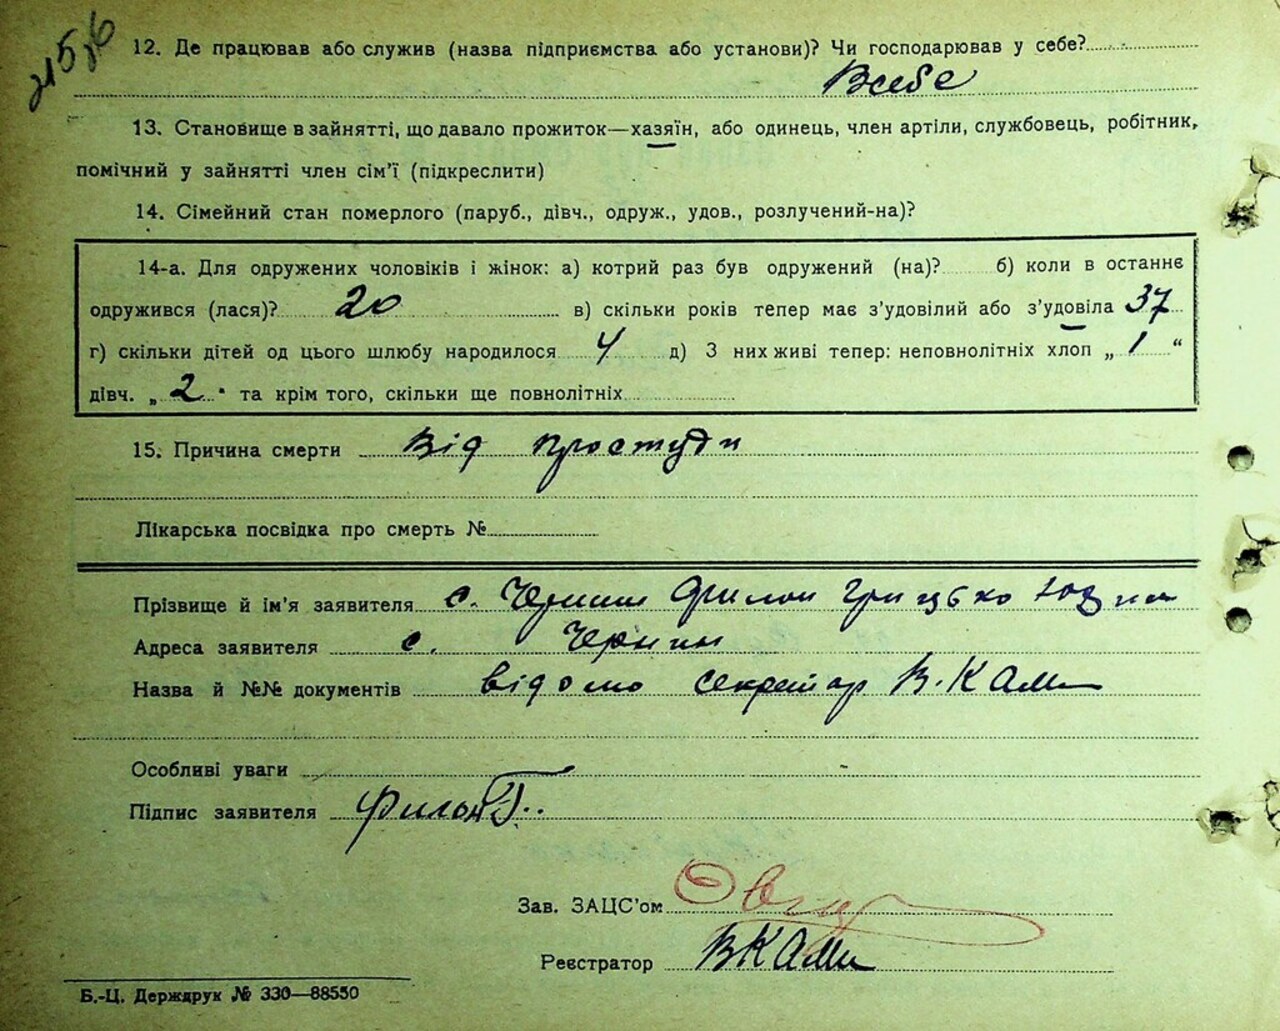 12. Де працював або служив (назва підприємства або установи)? Чи господарював у себе?
Всебе
13. Становище в зайнятті, що давало прожиток—хазяїн, або одинець, член артіли, службовець, робітник,
помічний у зайнятті член сім'ї (підкреслити)
14. Сімейний стан померлого (паруб., дівч., одруж., удов., розлучений-на)?
14-а. Для одружених чоловіків і жінок: а) котрий раз був одружений (на)? б) коли в останнє
одружився (лася)? 20 в) скільки років тепер має з'удовілий або з'удовіла 37
г) скільки дітей од цього шлюбу народилося 4 д) З них живі тепер: неповнолітніх хлоп „ 1 “
дівч. „ 2 “ та крім того, скільки ще повнолітніх
15. Причина смерти Від простуди
Лікарська посвідка про смерть №
Прізвище й ім'я заявителя с. Филон Грицько
Адреса заявителя с. Чернин
Назва й №№ документів відомо секретар
Особливі уваги
Підпис заявителя Филон Г..
Зав. ЗАЦС'ом
Реєстратор
Б.-Ц. Держдрук № 330—88550